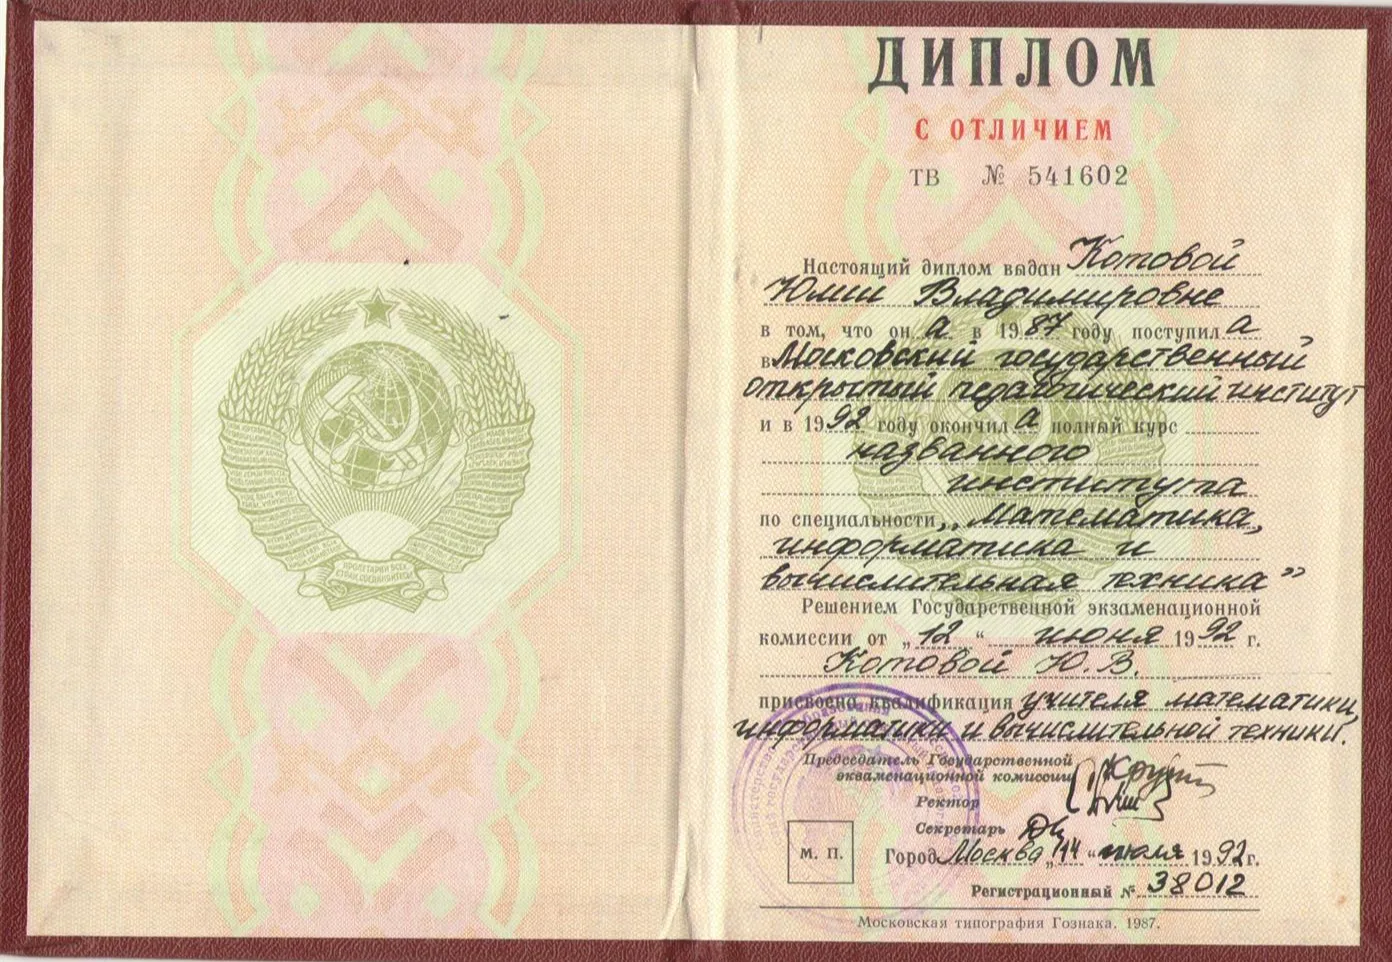 ПРОЛЕТАРИИ ВСЕХ
СТРАН, СОЕДИНЯЙТЕСЬ!
ДИПЛОМ
С ОТЛИЧИЕМ
ТВ № 541602
Настоящий диплом выдан Котовой
Юлии Владимировне
в том, что он а в 1987 году поступил а
в Московский государственный
открытый педагогический институт
и в 1992 году окончил а полный курс
названного
института
по специальности „Математика,
информатика и
вычислительная техника”
Решением Государственной экзаменационной
комиссии от „12“ июня 1992 г.
Котовой Ю.В.
присвоена квалификация учителя математики,
информатики и вычислительной техники.
Председатель Государственной
экзаменационной комиссии
Ректор
Секретарь
М. П.
Город Москва „14“ июля 1992г.
Регистрационный № 38012
Московская типография Гознака. 1987.